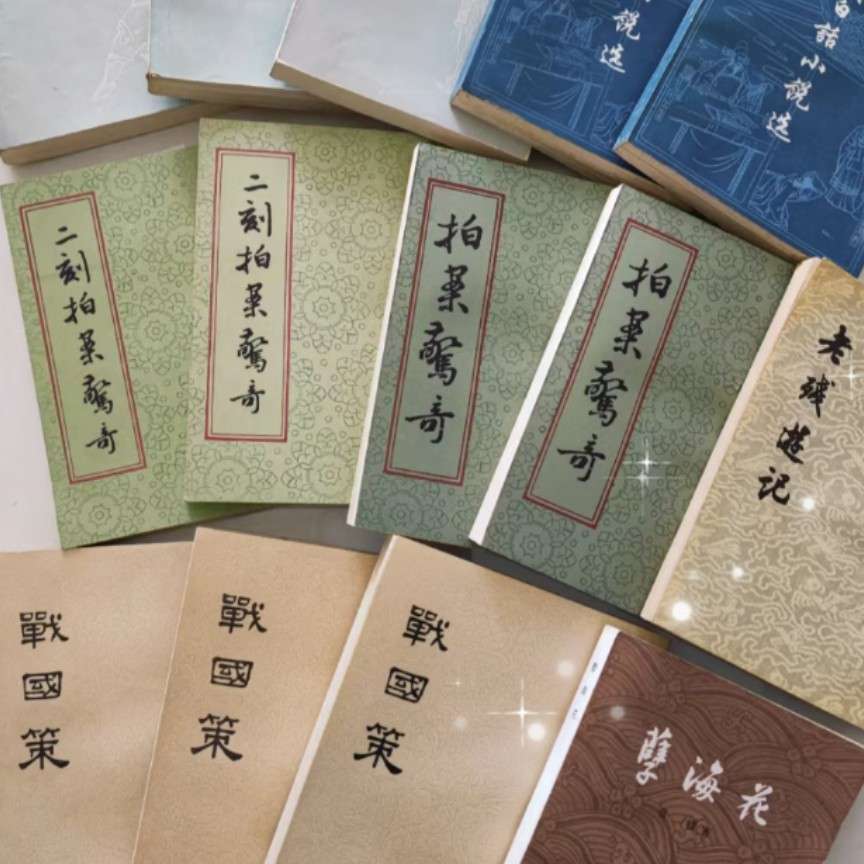 说选
白话小说选
二刻拍案驚奇
二刻拍案驚奇
拍案驚奇
拍案驚奇
老残遊记
戰國策
戰國策
戰國策
孽海花